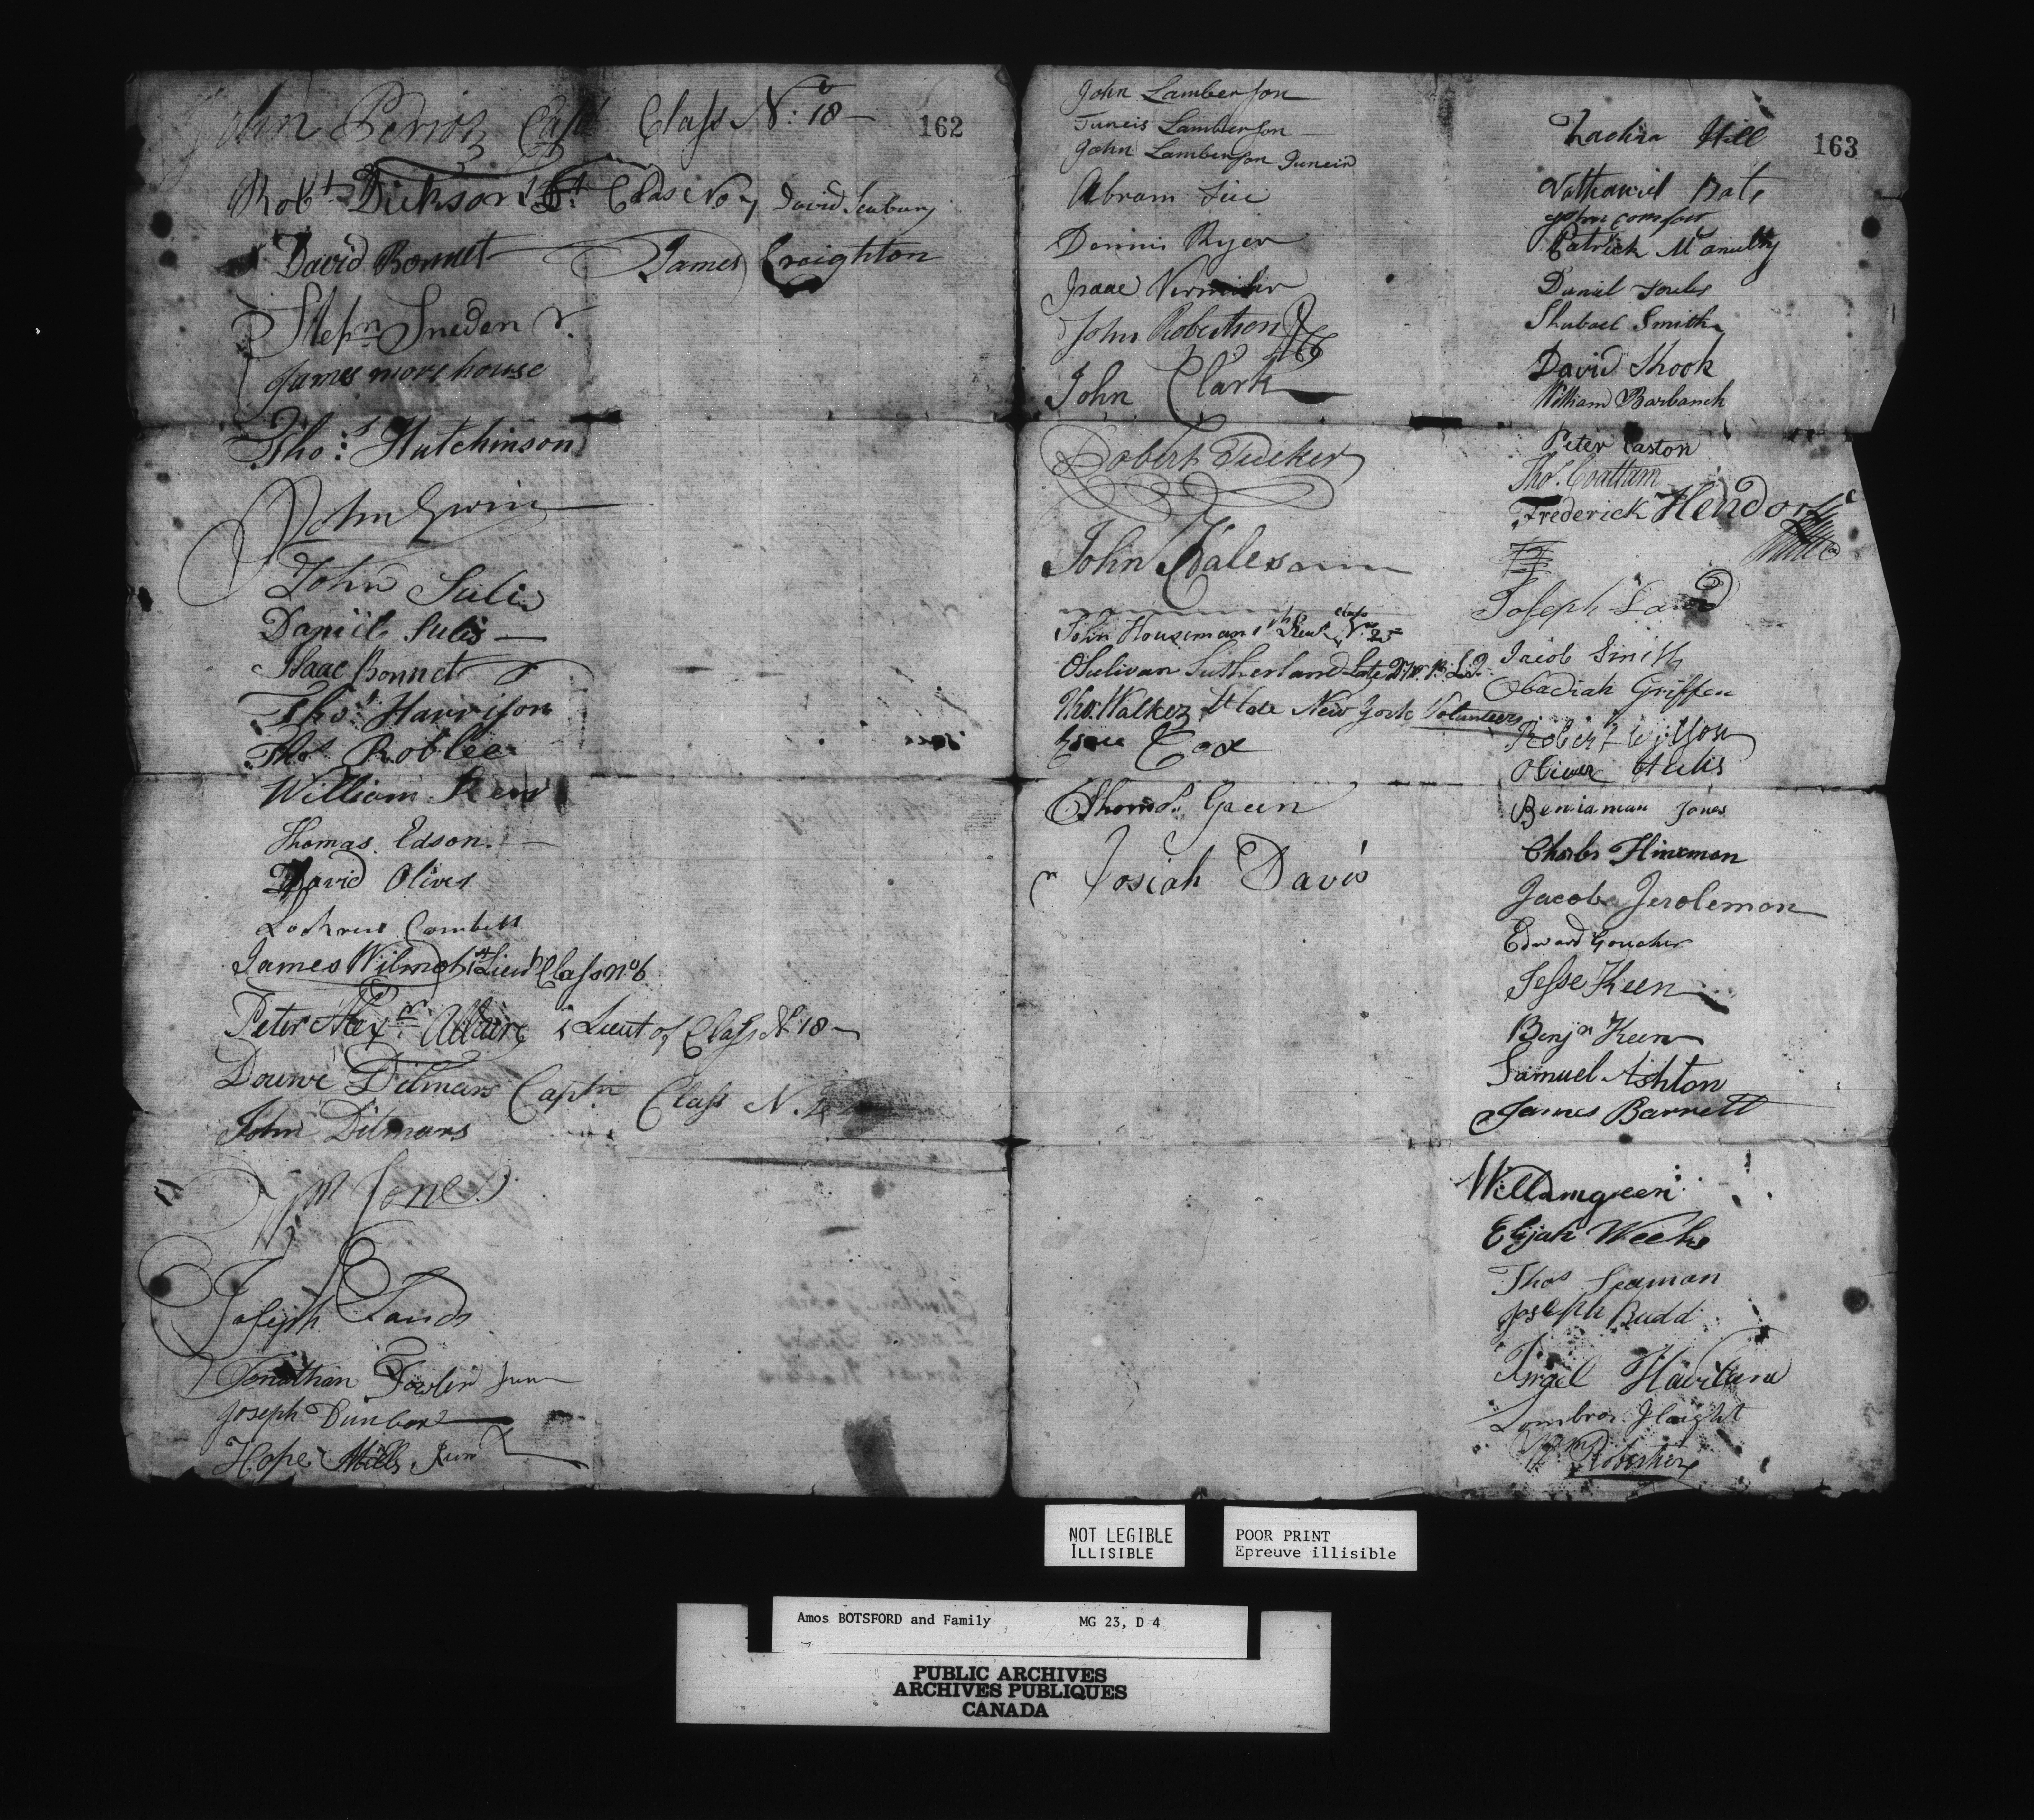 John Class No: 18 —
162
Robt Dickson Lt Class No 7 David Seabury
David Bonnet James Creighton
Stepn Sneden
James morehouse
Thos Hutchinson
John
John Sulis
Daniil Sulis —
Isaac Bonnet
Thos Harrison
Thos Roblee
William
Thomas Edson.
David Olives
Lochrens Cambell
James Wilmot 1st Lieut Class no 6
Peter Alexr Allaire 1 Lieut of Class No 18 —
Douwe Ditmars Captn Class N.
John Ditmars
Wm Jones
Joseph Sands
Jonathan Fowler Junr
Joseph Dunbar
Hope Mills Junr
John Lamberson
Juneis Lamberson —
John Lamberson Juneir
Abram
Dennis Ryer
Isaac
John Robertson
John Clark
Robert Tucker
John
John Housman 1st Lieut Class No 25
OSulivan Sutherland Late
Thos Walker Lt late New York Volunteers
Cox
Thomas Green
Josiah Davis
163
Hill
Nathaniel Bate
John Comfort
Patrick McAnulty
Daniel
Shubael Smith
David Shook
William Barbanck
Peter Easton
Thos Coattam
Frederick Hendorf
Joseph
Jacob Smith
Obadiah Griffen
Robert Wilson
Oliver
Beniaman Jones
Charles Hineman
Jacob Jerolemon
Edward Goucher
Jesse Keen
Benjn Keen
Samuel Ashton
James Barrett
Willamgreen
Elijah Weeks
Thos Seaman
Joseph Budd
Israel Haviland
Haight
Wm
NOT LEGIBLE
ILLISIBLE
POOR PRINT
Epreuve illisible
Amos BOTSFORD and Family MG 23, D 4
PUBLIC ARCHIVES
ARCHIVES PUBLIQUES
CANADA